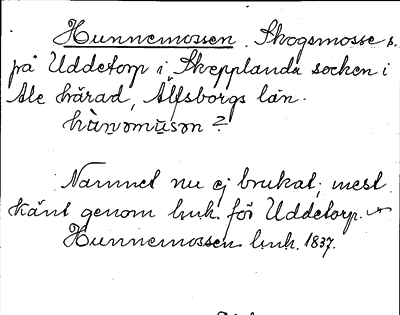 Hunnemossen. Skogsmosse s.
på Uddetorp i Skepplanda socken i
Ale härad, Älfsborgs län.
hùnəmu̇sən ?
Namnet nu ej brukat; mest
känt genom huk. för Uddetorp.
Hunnemossen huk. 1837.